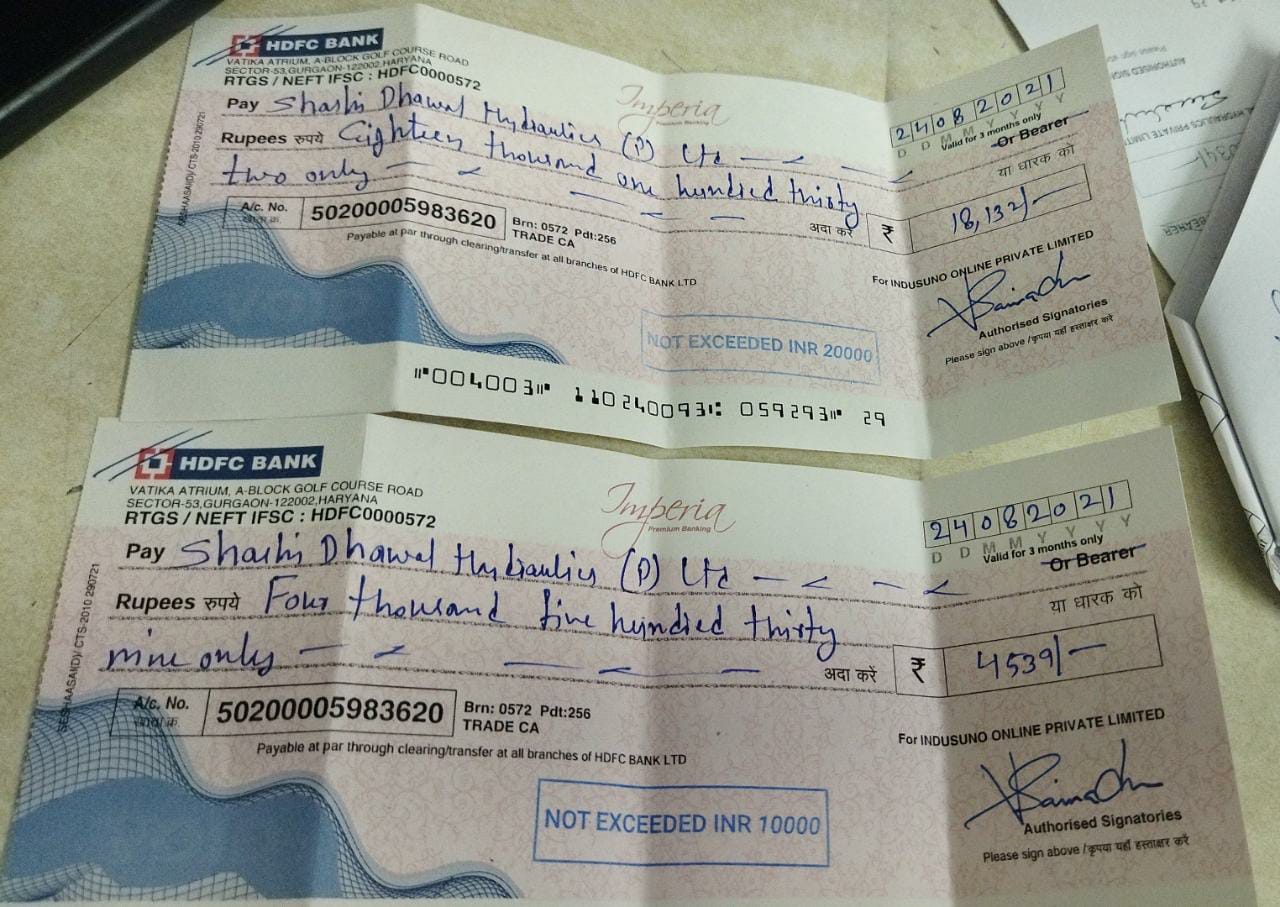 HDFC BANK
VATIKA ATRIUM, A-BLOCK GOLF COURSE ROAD
SECTOR-53,GURGAON-122002,HARYANA
RTGS / NEFT IFSC : HDFC0000572
Imperia
Premium Banking
24082021
D D M M Y Y Y Y
Valid for 3 months only
Pay Shashi Dhawal Hydraulics (P) Ltd
Or Bearer
या धारक को
Rupees रुपये Eighteen thousand one hundred thirty
two only
अदा करें ₹ 18,132/-
A/c. No. 50200005983620 Brn: 0572 Pdt:256
TRADE CA
Payable at par through clearing/transfer at all branches of HDFC BANK LTD
For INDUSUNO ONLINE PRIVATE LIMITED
NOT EXCEEDED INR 20000
Authorised Signatories
Please sign above /कृपया यहाँ हस्ताक्षर करें
⑈004003⑈ 110240093⑆ 059293⑈ 29
CTS-2010 290721
HDFC BANK
VATIKA ATRIUM, A-BLOCK GOLF COURSE ROAD
SECTOR-53,GURGAON-122002,HARYANA
RTGS / NEFT IFSC : HDFC0000572
Imperia
Premium Banking
24082021
D D M M Y Y Y Y
Valid for 3 months only
Pay Shashi Dhawal Hydraulics (P) Ltd
Or Bearer
या धारक को
Rupees रुपये Four thousand five hundred thirty
nine only
अदा करें ₹ 4539/-
A/c. No. 50200005983620 Brn: 0572 Pdt:256
TRADE CA
Payable at par through clearing/transfer at all branches of HDFC BANK LTD
For INDUSUNO ONLINE PRIVATE LIMITED
NOT EXCEEDED INR 10000
Authorised Signatories
Please sign above /कृपया यहाँ हस्ताक्षर करें
CTS-2010 290721
HYDRAULICS PRIVATE LIMIT
BEARER